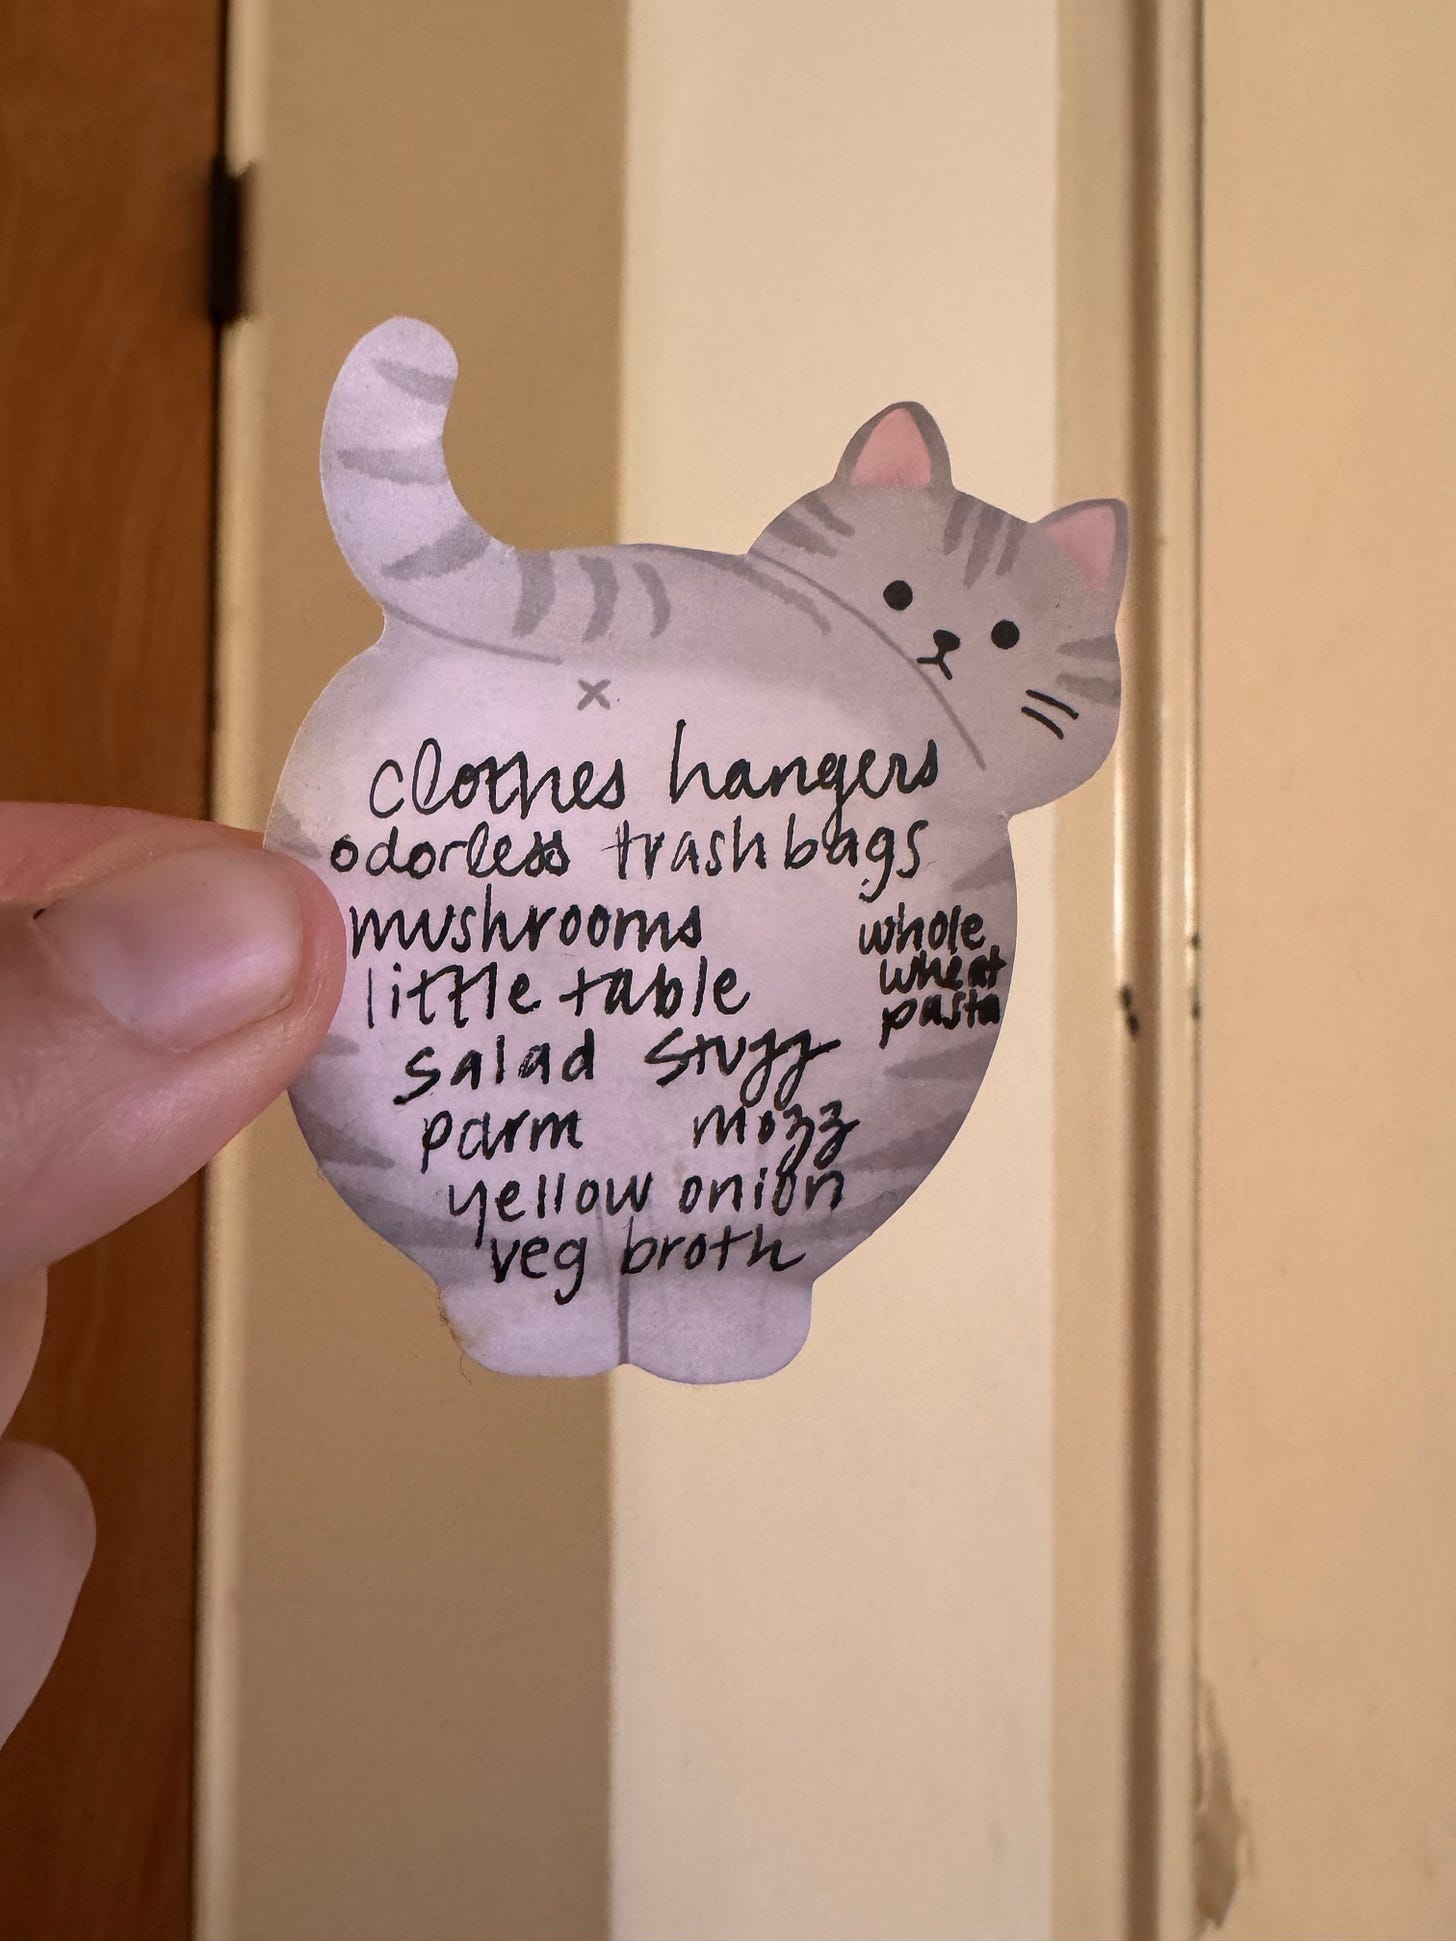 clothes hangers
odorless trash bags
mushrooms
little table
salad stuff
parm mozz
yellow onion
veg broth
whole
wheat
pasta